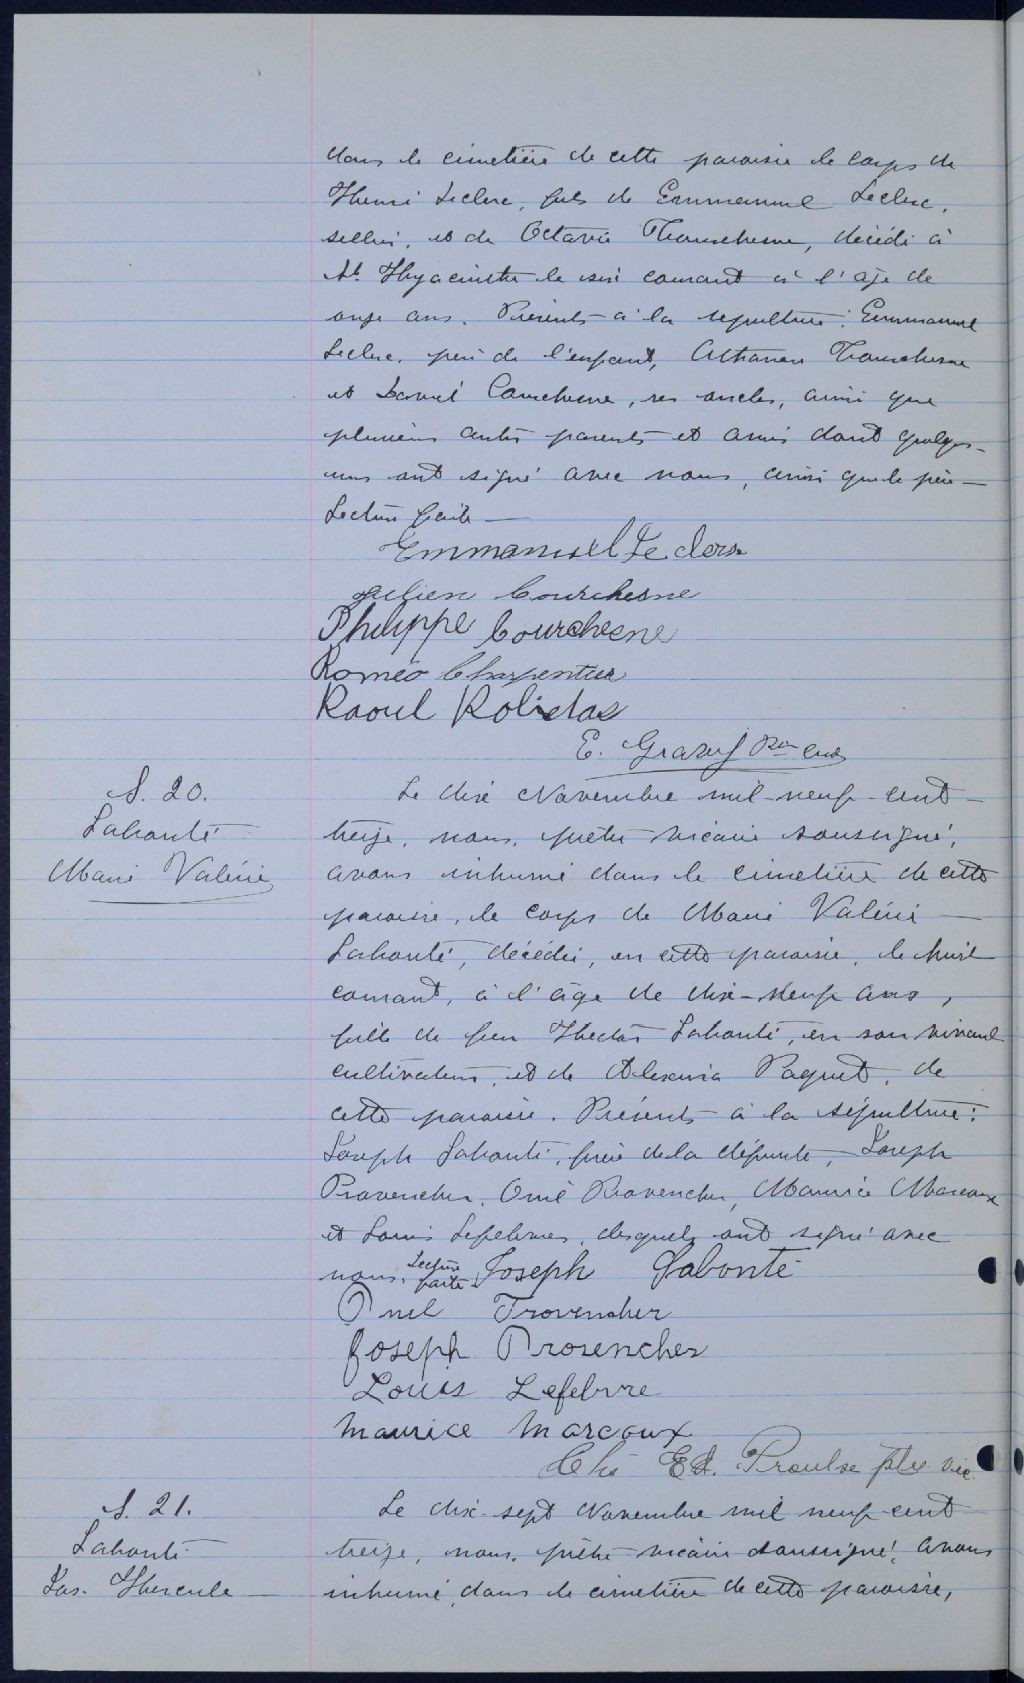 dans le cimetière de cette paroisse le corps de
Henri Leclerc, fils de Emmanuel Leclerc,
sellier, et de Octavie Courchesne, décédé à
St. Hyacinthe le six courant à l'âge de
onze ans. Présents à la sépulture: Emmanuel
Leclerc, père de l'enfant, Courchesne
et Courchesne, ses oncles, ainsi que
plusieurs autres parents et amis dont quelques-
uns ont signé avec nous, ainsi que le père —
Lecture faite —
Emmanuel Leclerc
Julien Courchesne
Philippe Courchesne
Roméo Charpentier
Raoul Robidas
E. Gravel Ptre curé
S. 20.
Labonté
Marie Valérie
Le dix Novembre mil-neuf-cent-
treize, nous, prêtre vicaire soussigné,
avons inhumé dans le cimetière de cette
paroisse, le corps de Marie Valérie —
Labonté, décédée, en cette paroisse, le huit
courant, à l'âge de dix-neuf ans,
fille de feu Hector Labonté, en son vivant
cultivateur, et de Paquet, de
cette paroisse. Présents à la sépulture:
Joseph Labonté, frère de la défunte, Joseph
Provencher, Omil Provencher, Maurice Marcoux
et Louis Lefebvre, desquels ont signé avec
nous. Lecture faite. Joseph Labonté
Omil Provencher
Joseph Provencher
Louis Lefebvre
Maurice Marcoux
Chs Ed. Proulx ptre vic.
S. 21.
Labonté
Jos. Hercule
Le dix-sept Novembre mil neuf-cent
treize, nous, prêtre vicaire soussigné, avons
inhumé, dans le cimetière de cette paroisse,